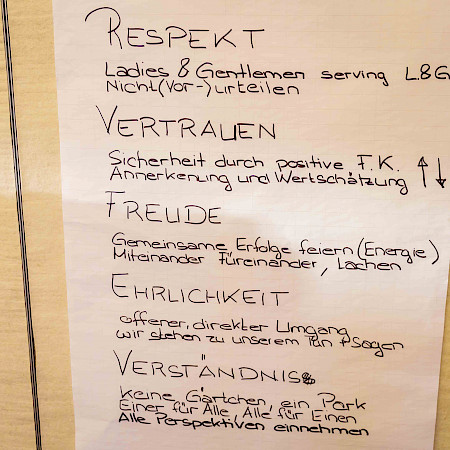 RESPEKT
Ladies & Gentlemen serving L&G
Nicht(Vor-)urteilen
VERTRAUEN
Sicherheit durch positive F.K. ↑↓
Annerkenung und Wertschätzung
FREUDE
Gemeinsame Erfolge feiern (Energie)
Miteinander Füreinander, Lachen
EHRLICHKEIT
offener, direkter Umgang
wir stehen zu unserem Tun + Sagen
VERSTÄNDNIS
Keine Gärtchen, ein Park
Einer für Alle, Alle für Einen
Alle Perspektiven einnehmen